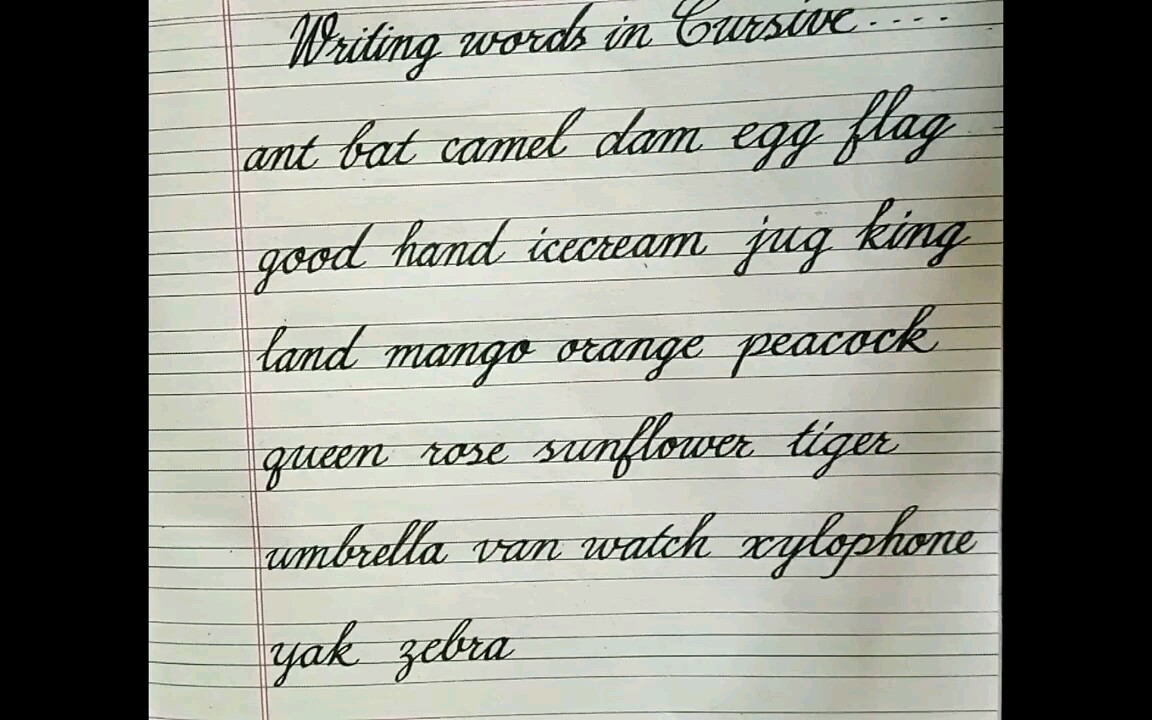 Writing words in Cursive....
ant bat camel dam egg flag
good hand icecream jug king
land mango orange peacock
queen rose sunflower tiger
umbrella van watch xylophone
yak zebra